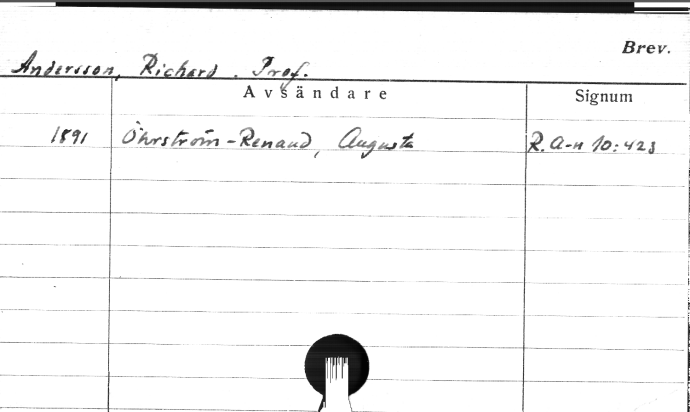 Brev.
Andersson, Richard. Prof.
Avsändare Signum
1891 Öhrström-Renaud, Augusta R. A-n 10:423